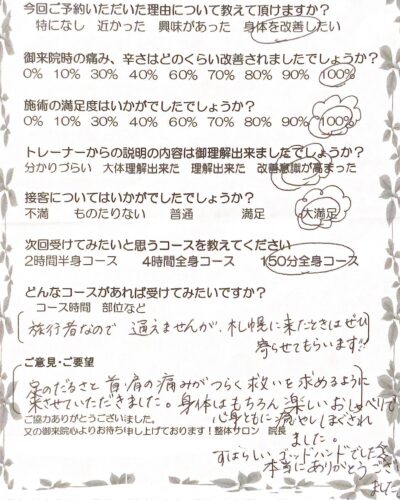 今回ご予約いただいた理由について教えて頂けますか?
特になし 近かった 興味があった 身体を改善したい
御来院時の痛み、辛さはどのくらい改善されましたでしょうか?
0% 10% 30% 40% 60% 70% 80% 90% 100%
施術の満足度はいかがでしたでしょうか?
0% 10% 30% 40% 60% 70% 80% 90% 100%
トレーナーからの説明の内容は御理解出来ましたでしょうか?
分かりづらい 大体理解出来た 理解出来た 改善意識が高まった
接客についてはいかがでしたでしょうか?
不満 ものたりない 普通 満足 大満足
次回受けてみたいと思うコースを教えてください
2時間半身コース 4時間全身コース 150分全身コース
どんなコースがあれば受けてみたいですか?
コース時間 部位など
旅行者なので 通えませんが、札幌に来たときはぜひ
寄らせてもらいます!!
ご意見・ご要望
足のだるさと首肩の痛みがつらく救いを求めるように
来させていただきました。身体はもちろん楽しいおしゃべりで
ご協力ありがとうございました。
心身ともに癒やしほぐされ
又の御来院心よりお待ち申し上げております!整体サロン 院長
ました。
すばらしいゴッドハンドでした
本当にありがとうござい
ました